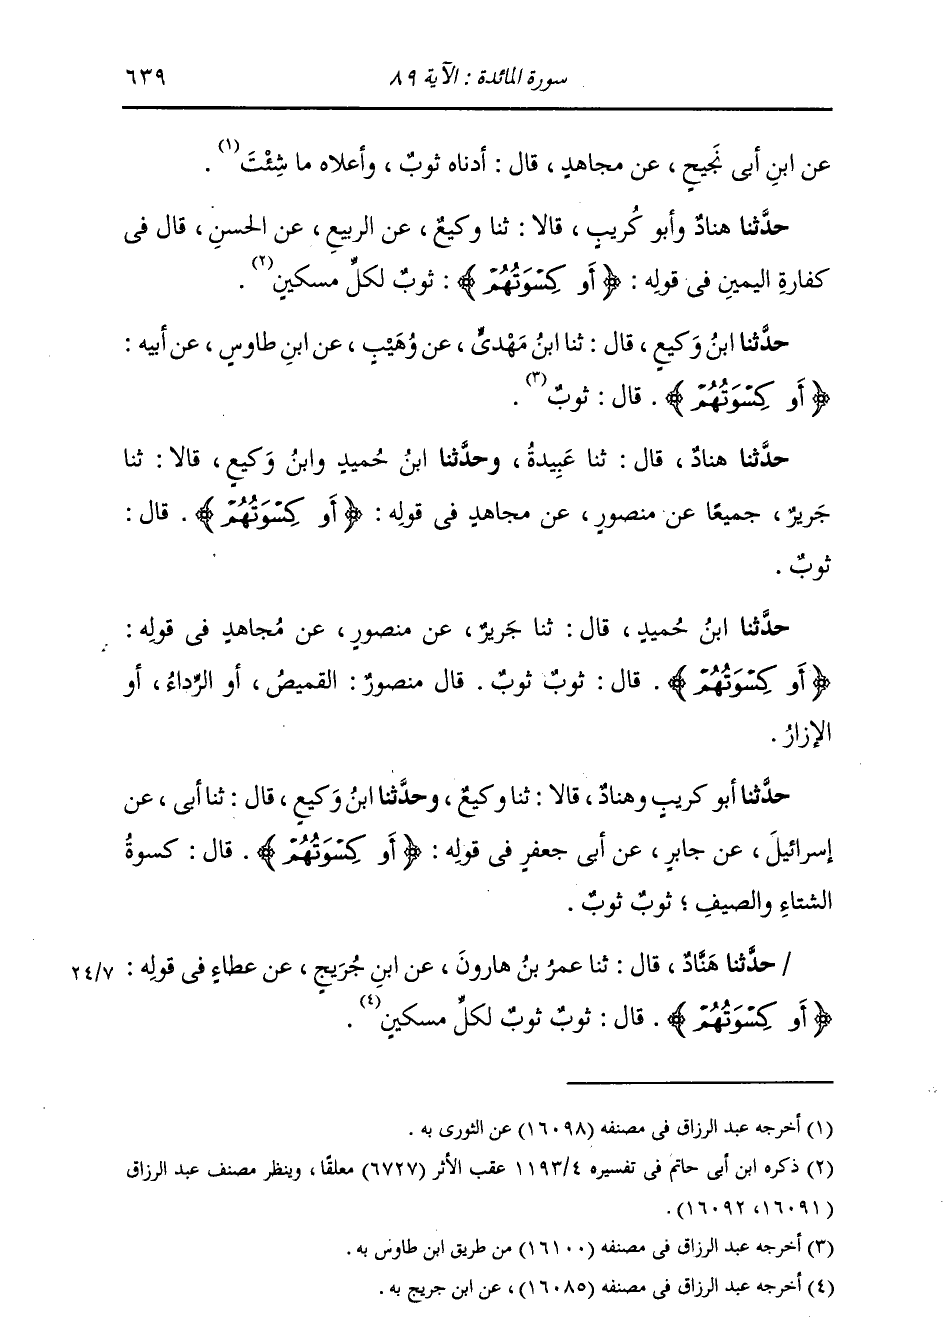 سورة المائدة : الآية ٨٩ ٦٣٩
عن ابنِ أبى نَجيحٍ ، عن مجاهدٍ ، قال : أدناه ثوبٌ ، وأعلاه ما شِئْتَ(١) .
حدَّثنا هنادٌ وأبو كُريبٍ ، قالا : ثنا وكيعٌ ، عن الربيعِ ، عن الحسنِ ، قال فى
كفارةِ اليمينِ فى قولِه : ﴿ أَوْ كِسْوَتُهُمْ ﴾ : ثوبٌ لكلِّ مسكينٍ(٢) .
حدَّثنا ابنُ وَكيعٍ ، قال : ثنا ابنُ مَهْدىٍّ ، عن وُهَيْبٍ ، عن ابنِ طاوسٍ ، عن أبيه :
﴿ أَوْ كِسْوَتُهُمْ ﴾ . قال : ثوبٌ(٣) .
حدَّثنا هنادٌ ، قال : ثنا عَبِيدةُ ، وحدَّثنا ابنُ حُميدٍ وابنُ وَكيعٍ ، قالا : ثنا
جَريرٌ ، جميعًا عن منصورٍ ، عن مجاهدٍ فى قولِه : ﴿ أَوْ كِسْوَتُهُمْ ﴾ . قال :
ثوبٌ .
حدَّثنا ابنُ حُميدٍ ، قال : ثنا جَريرٌ ، عن منصورٍ ، عن مُجاهدٍ فى قولِه :
﴿ أَوْ كِسْوَتُهُمْ ﴾ . قال : ثوبٌ ثوبٌ . قال منصورٌ : القميصُ ، أو الرِّداءُ ، أو
الإزارُ .
حدَّثنا أبو كريبٍ وهنادٌ ، قالا : ثنا وكيعٌ ، وحدَّثنا ابنُ وَكيعٍ ، قال : ثنا أبى ، عن
إسرائيلَ ، عن جابرٍ ، عن أبى جعفرٍ فى قولِه : ﴿ أَوْ كِسْوَتُهُمْ ﴾ . قال : كسوةُ
الشتاءِ والصيفِ ؛ ثوبٌ ثوبٌ .
/ حدَّثنا هَنَّادٌ ، قال : ثنا عمرُ بنُ هارونَ ، عن ابنِ جُرَيجٍ ، عن عطاءٍ فى قولِه : ٢٤/٧
﴿ أَوْ كِسْوَتُهُمْ ﴾ . قال : ثوبٌ ثوبٌ لكلِّ مسكينٍ(٤) .
(١) أخرجه عبد الرزاق فى مصنفه (١٦٠٩٨) عن الثورى به .
(٢) ذكره ابن أبى حاتم فى تفسيره ١١٩٣/٤ عقب الأثر (٦٧٢٧) معلقًا ، وينظر مصنف عبد الرزاق
(١٦٠٩١، ١٦٠٩٢) .
(٣) أخرجه عبد الرزاق فى مصنفه (١٦١٠٠) من طريق ابن طاوس به .
(٤) أخرجه عبد الرزاق فى مصنفه (١٦٠٨٥) ، عن ابن جريج به .